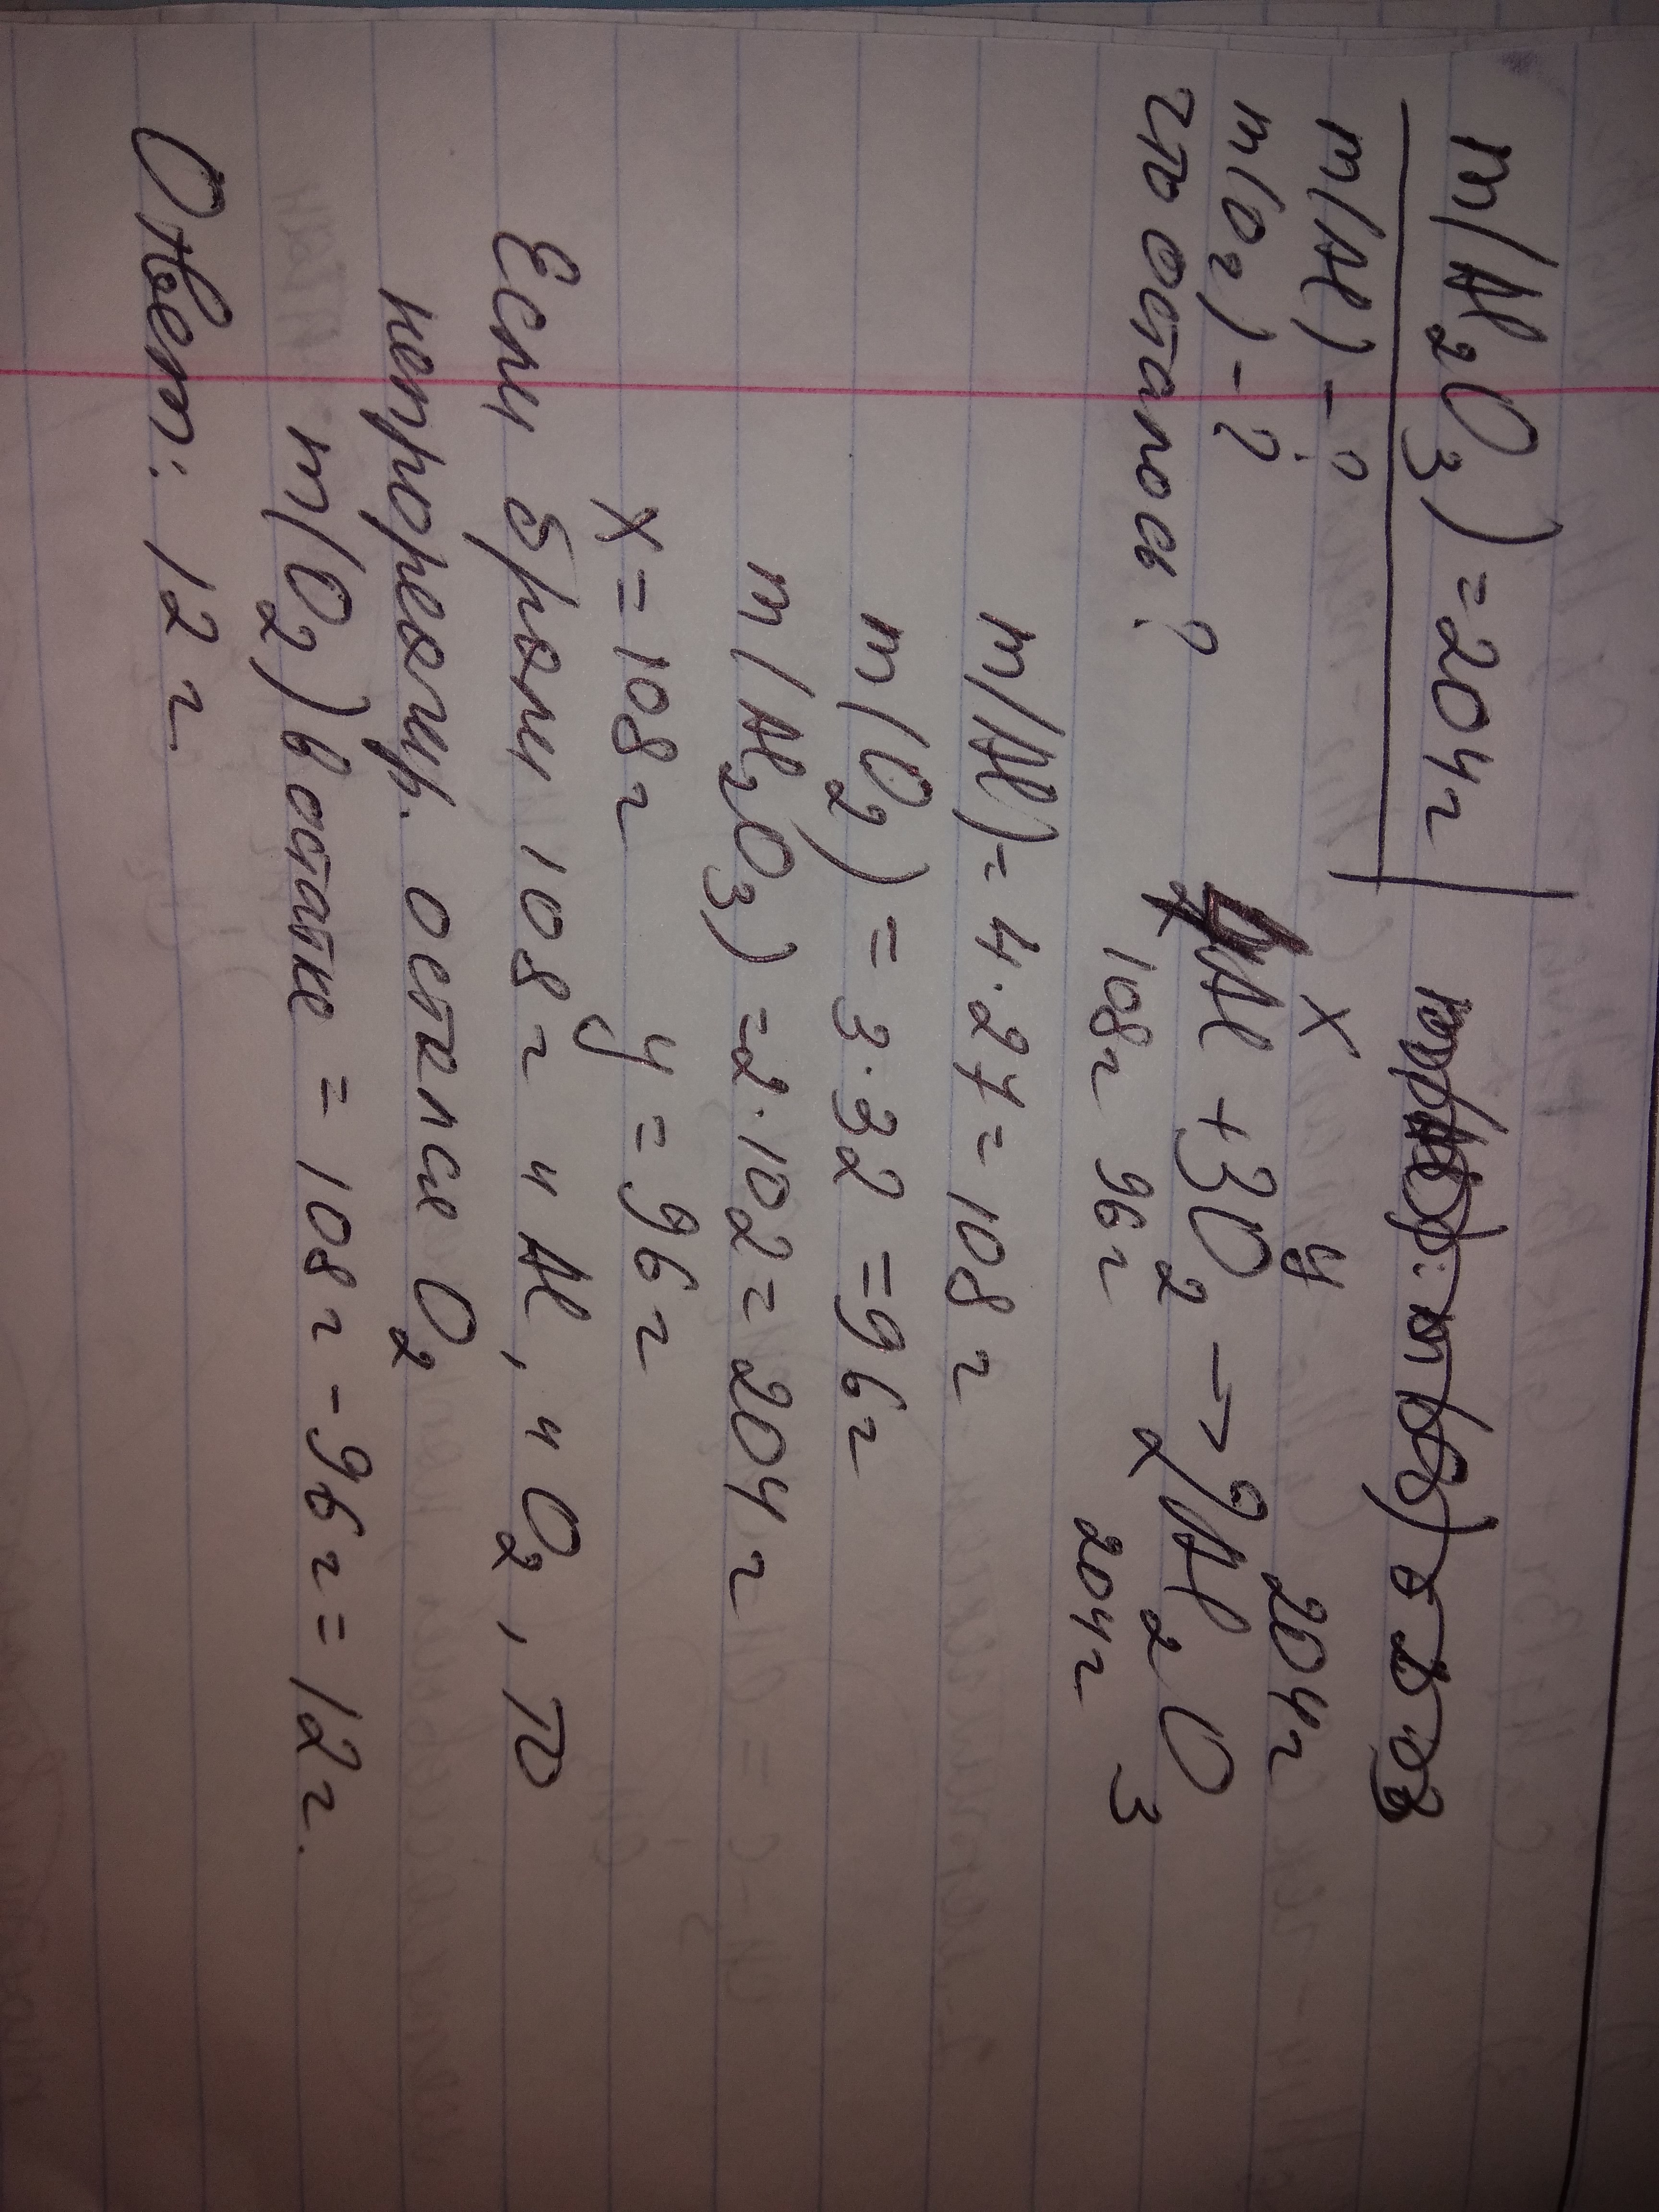 m(Al2O3) = 204г
m(Al) - ?
m(O2) - ?
что осталось?
x y 204г
4Al + 3O2 → 2Al2O3
108г 96г 204г
m(Al) = 4·27 = 108г
m(O2) = 3·32 = 96г
m(Al2O3) = 2·102 = 204г
x = 108г y = 96г
Если брали 108г и Al, и O2, то
непрореагир. остался O2
m(O2) в остатке = 108г - 96г = 12г.
Ответ: 12г